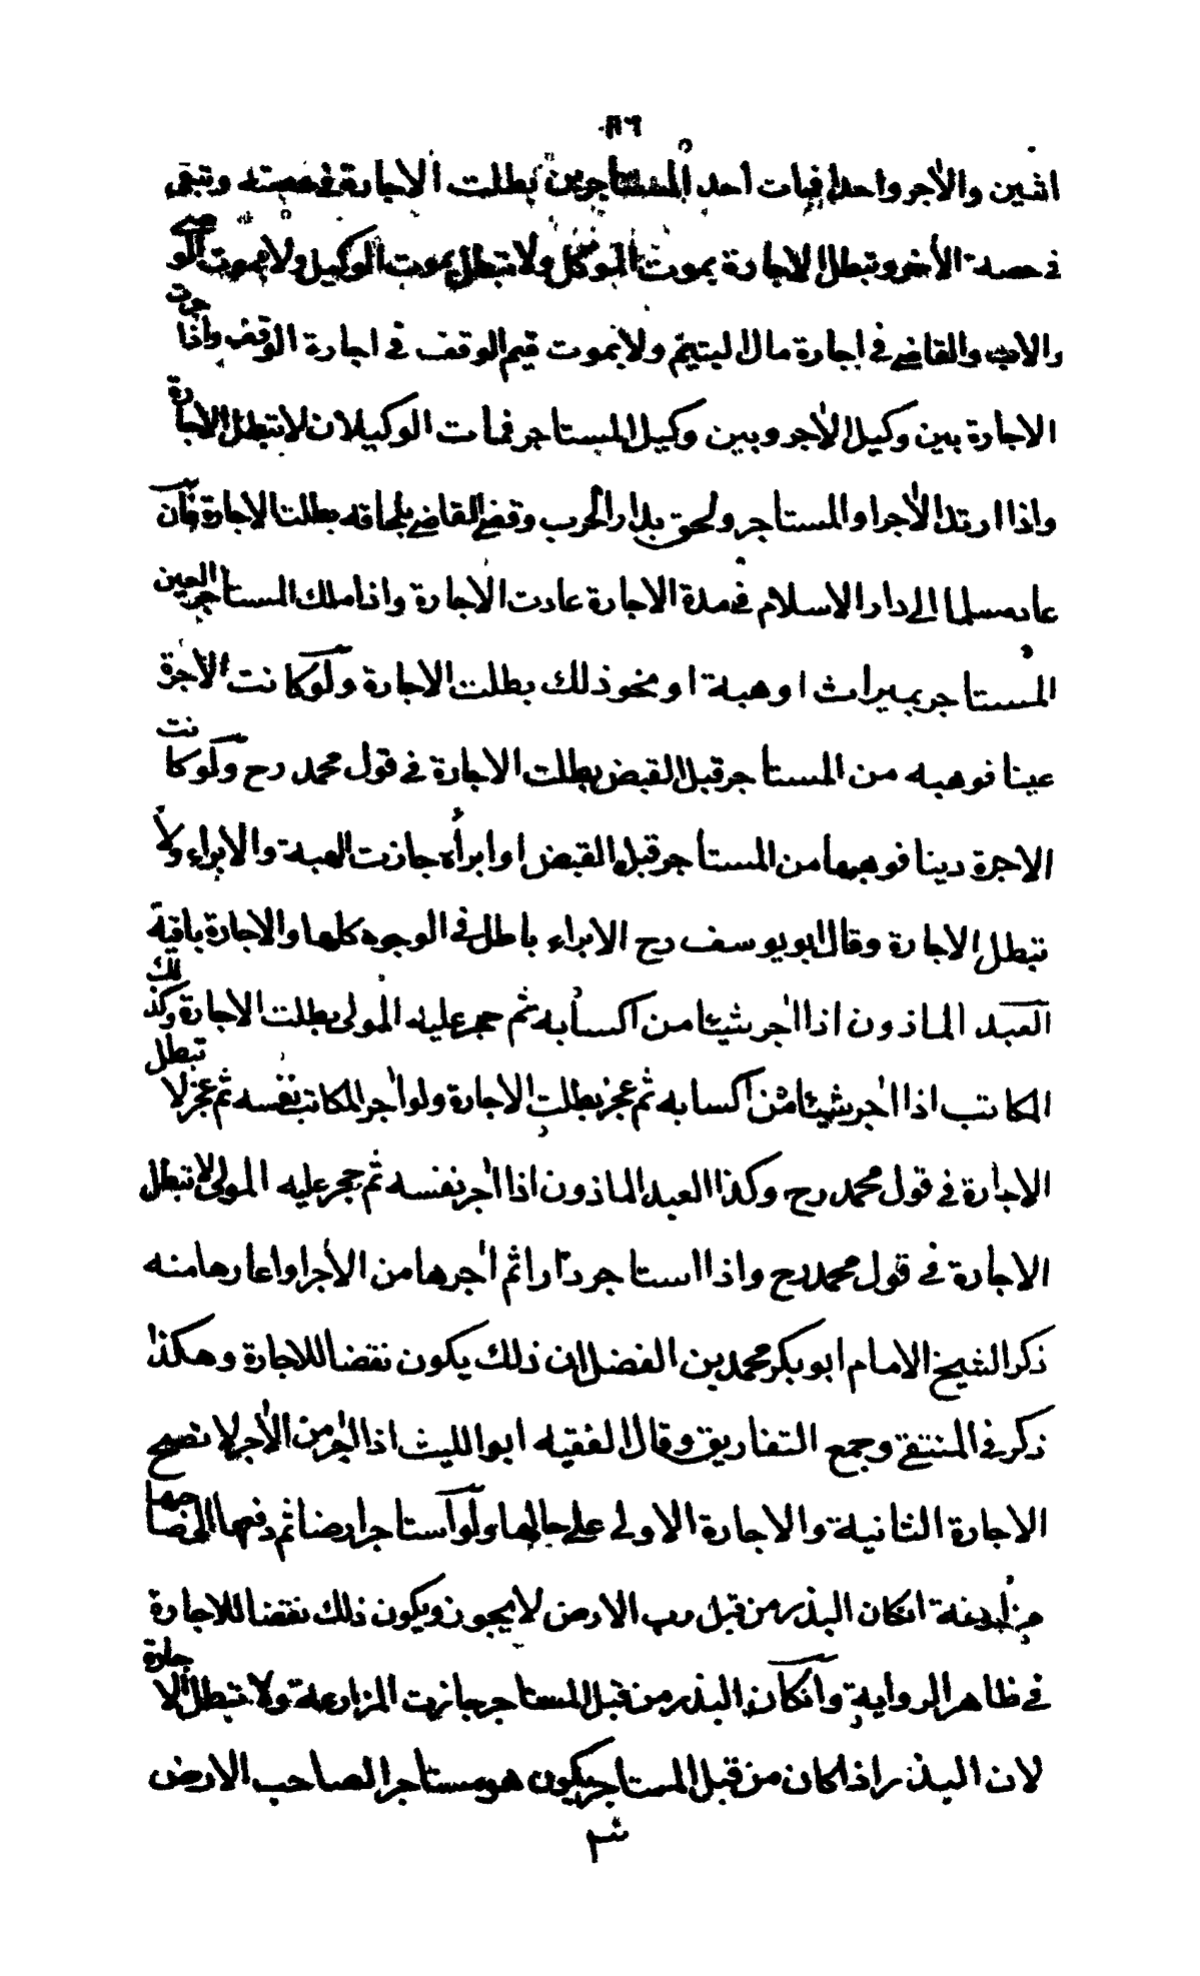 ٨٦
اثنين والاجر واحدا فمات احد المستاجرين بطلت الاجارة في حصته وتبقى
في حصة الأخر وتبطل الاجارة بموت الموكل ولا تبطل بموت الوكيل ولا بموت الوصي
والاب والقاضي في اجارة مال اليتيم ولا بموت قيم الوقف في اجارة الوقف واذا جرت
الاجارة بين وكيل الأجر وبين وكيل المستاجر فمات الوكيلان لا تبطل الاجارة
واذا ارتد الأجر او المستاجر ولحق بدار الحرب وقضى القاضي بلحاقه بطلت الاجارة فان
عاد مسلما الى دار الاسلام في مدة الاجارة عادت الاجارة واذا ملك المستاجر العين
المستاجر بميراث او هبة او نحو ذلك بطلت الاجارة ولو كانت الأجرة
عينا فوهبه من المستاجر قبل القبض بطلت الاجارة في قول محمد رح ولو كانت
الاجرة دينا فوهبها من المستاجر قبل القبض او ابرأه جازت الهبة والابراء ولا
تبطل الاجارة وقال ابو يوسف رح الابراء باطل في الوجوه كلها والاجارة باقية
العبد الماذون اذا اجر شيئا من اكسابه ثم حجر عليه المولى بطلت الاجارة وكذلك
المكاتب اذا اجر شيئا من اكسابه ثم عجز بطلت الاجارة ولو اجر المكاتب نفسه ثم عجز لا تبطل
الاجارة في قول محمد رح وكذا العبد الماذون اذا اجر نفسه ثم حجر عليه المولى لا تبطل
الاجارة في قول محمد رح واذا استاجر دارا ثم اجرها من الأجر او اعارها منه
ذكر الشيخ الامام ابو بكر محمد بن الفضل ان ذلك يكون نقضا للاجارة وهكذا
ذكر في المنتقى وجمع التفاريق وقال الفقيه ابو الليث اذا اجر من الأجر لا تصح
الاجارة الثانية والاجارة الاولى على حالها ولو استاجر ارضا ثم دفعها الى صاحبها
مزارعة ان كان البذر من قبل رب الارض لا يجوز ويكون ذلك نقضا للاجارة
في ظاهر الرواية وان كان البذر من قبل المستاجر جازت المزارعة ولا تبطل الاجارة
لان البذر اذا كان من قبل المستاجر يكون هو مستاجرا لصاحب الارض